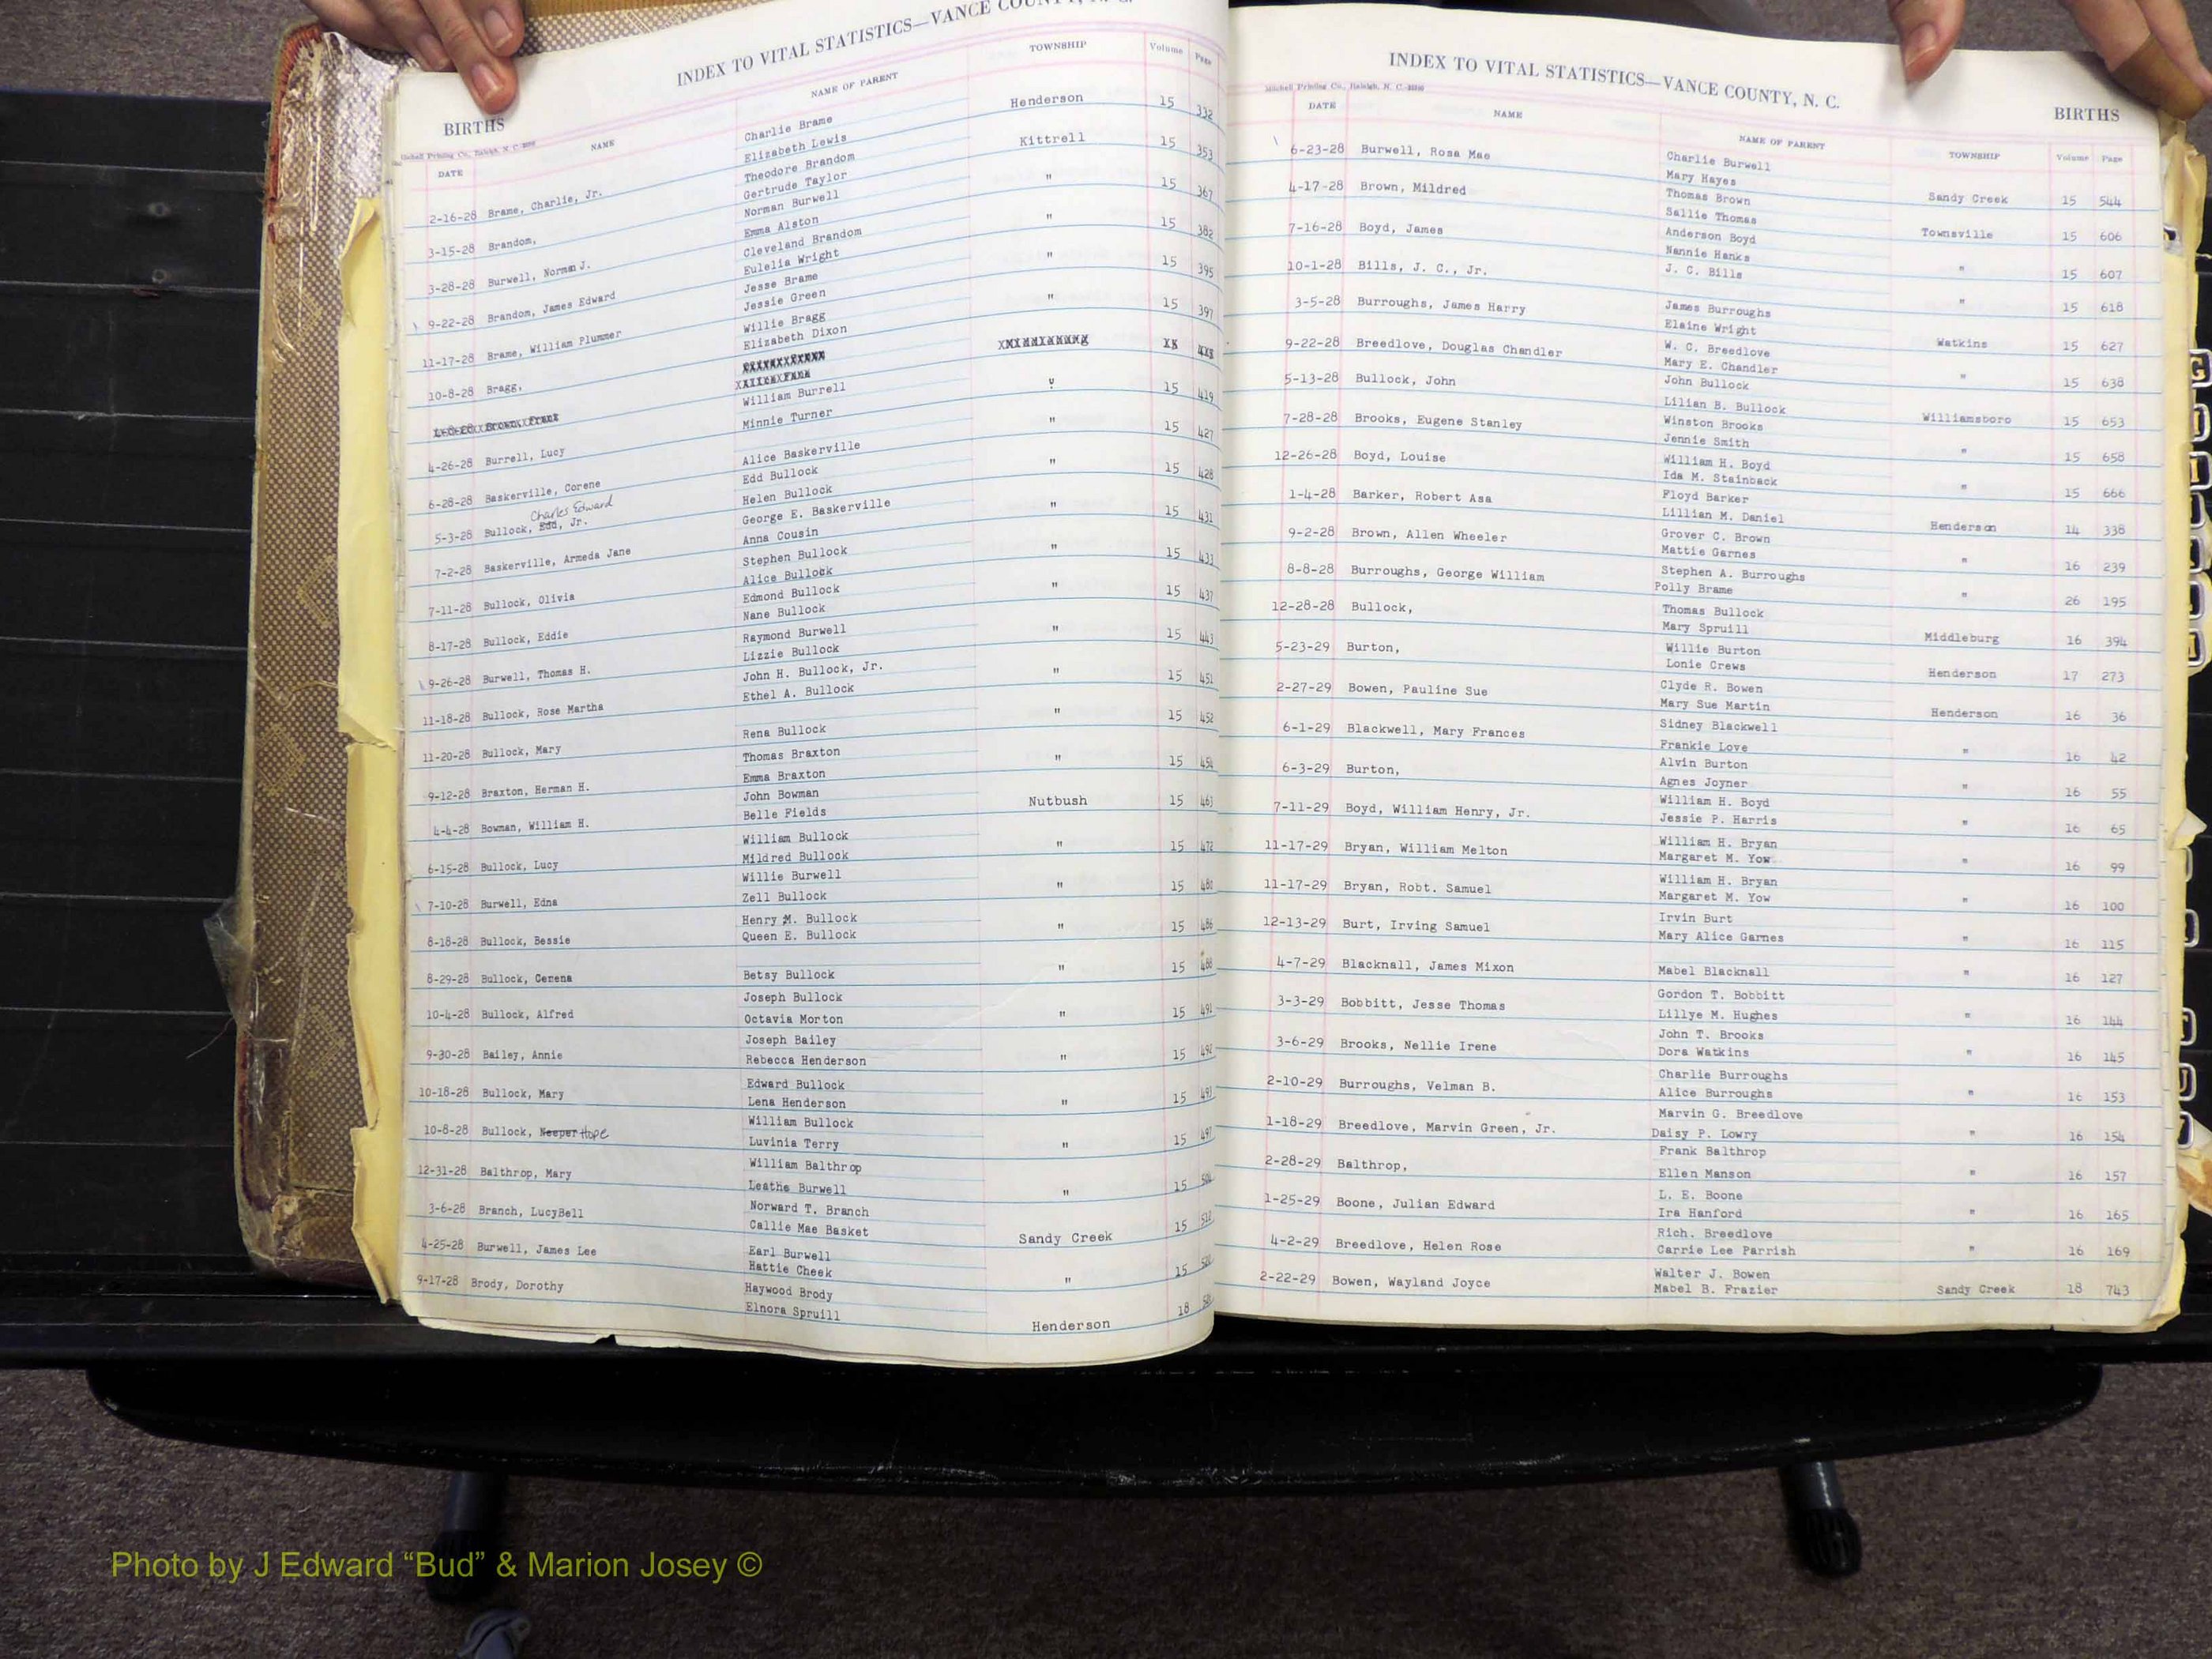 INDEX TO VITAL STATISTICS—VANCE COUNTY, N. C.
BIRTHS
DATE NAME NAME OF PARENT TOWNSHIP Volume Page
2-16-28 Brame, Charlie, Jr. Charlie Brame Henderson 15 332
Elizabeth Lewis
3-15-28 Brandom, Theodore Brandom Kittrell 15 353
Gertrude Taylor
3-28-28 Burwell, Norman J. Norman Burwell " 15 367
Emma Alston
9-22-28 Brandom, James Edward Cleveland Brandom " 15 382
Eulelia Wright
11-17-28 Brame, William Plummer Jesse Brame " 15 395
Jessie Green
10-8-28 Bragg, Willie Bragg " 15 397
Elizabeth Dixon
4-26-28 Burrell, Lucy William Burrell " 15 419
Minnie Turner
6-28-28 Baskerville, Corene " 15 427
Alice Baskerville
Charles Edward
5-3-28 Bullock, Edd, Jr. Edd Bullock " 15 428
Helen Bullock
7-2-28 Baskerville, Armeda Jane George E. Baskerville " 15 431
Anna Cousin
7-11-28 Bullock, Olivia Stephen Bullock " 15 433
Alice Bullock
8-17-28 Bullock, Eddie Edmond Bullock " 15 437
Nane Bullock
9-26-28 Burwell, Thomas H. Raymond Burwell " 15 443
Lizzie Bullock
11-18-28 Bullock, Rose Martha John H. Bullock, Jr. " 15 451
Ethel A. Bullock
11-20-28 Bullock, Mary " 15 452
Rena Bullock
9-12-28 Braxton, Herman H. Thomas Braxton " 15 454
Emma Braxton
4-4-28 Bowman, William H. John Bowman Nutbush 15 463
Belle Fields
6-15-28 Bullock, Lucy William Bullock " 15 472
Mildred Bullock
7-10-28 Burwell, Edna Willie Burwell " 15
Zell Bullock
8-18-28 Bullock, Bessie Henry M. Bullock " 15 486
Queen E. Bullock
8-29-28 Bullock, Cerena " 15 488
Betsy Bullock
10-4-28 Bullock, Alfred Joseph Bullock " 15 491
Octavia Morton
9-30-28 Bailey, Annie Joseph Bailey " 15 492
Rebecca Henderson
10-18-28 Bullock, Mary Edward Bullock " 15 493
Lena Henderson
10-8-28 Bullock, Neeper Hope William Bullock " 15 497
Luvinia Terry
12-31-28 Balthrop, Mary William Balthrop " 15
Leathe Burwell
3-6-28 Branch, LucyBell Norward T. Branch Sandy Creek 15 512
Callie Mae Basket
4-25-28 Burwell, James Lee Earl Burwell " 15
Hattie Cheek
9-17-28 Brody, Dorothy Haywood Brody Henderson 18
Elnora Spruill
INDEX TO VITAL STATISTICS—VANCE COUNTY, N. C.
Mitchell Printing Co., Raleigh, N. C.
BIRTHS
DATE NAME NAME OF PARENT TOWNSHIP Volume Page
6-23-28 Burwell, Rosa Mae Charlie Burwell Sandy Creek 15 544
Mary Hayes
4-17-28 Brown, Mildred Thomas Brown Townsville 15 606
Sallie Thomas
7-16-28 Boyd, James Anderson Boyd " 15 607
Nannie Hanks
10-1-28 Bills, J. C., Jr. J. C. Bills " 15 618
3-5-28 Burroughs, James Harry James Burroughs Watkins 15 627
Elaine Wright
9-22-28 Breedlove, Douglas Chandler W. C. Breedlove " 15 638
Mary E. Chandler
5-13-28 Bullock, John John Bullock Williamsboro 15 653
Lilian B. Bullock
7-28-28 Brooks, Eugene Stanley Winston Brooks " 15 658
Jennie Smith
12-26-28 Boyd, Louise William H. Boyd " 15 666
Ida M. Stainback
1-4-28 Barker, Robert Asa Floyd Barker Henderson 14 338
Lillian M. Daniel
9-2-28 Brown, Allen Wheeler Grover C. Brown " 16 239
Mattie Garnes
8-8-28 Burroughs, George William Stephen A. Burroughs " 26 195
Polly Brame
12-28-28 Bullock, Thomas Bullock Middleburg 16 394
Mary Spruill
5-23-29 Burton, Willie Burton Henderson 17 273
Lonie Crews
2-27-29 Bowen, Pauline Sue Clyde R. Bowen Henderson 16 36
Mary Sue Martin
6-1-29 Blackwell, Mary Frances Sidney Blackwell " 16 42
Frankie Love
6-3-29 Burton, Alvin Burton " 16 55
Agnes Joyner
7-11-29 Boyd, William Henry, Jr. William H. Boyd " 16 65
Jessie P. Harris
11-17-29 Bryan, William Melton William H. Bryan " 16 99
Margaret M. Yow
11-17-29 Bryan, Robt. Samuel William H. Bryan " 16 100
Margaret M. Yow
12-13-29 Burt, Irving Samuel Irvin Burt " 16 115
Mary Alice Garnes
4-7-29 Blacknall, James Mixon " 16 127
Mabel Blacknall
3-3-29 Bobbitt, Jesse Thomas Gordon T. Bobbitt " 16 144
Lillye M. Hughes
3-6-29 Brooks, Nellie Irene John T. Brooks " 16 145
Dora Watkins
2-10-29 Burroughs, Velman B. Charlie Burroughs " 16 153
Alice Burroughs
1-18-29 Breedlove, Marvin Green, Jr. Marvin G. Breedlove " 16 154
Daisy P. Lowry
2-28-29 Balthrop, Frank Balthrop " 16 157
Ellen Manson
1-25-29 Boone, Julian Edward L. E. Boone " 16 165
Ira Hanford
4-2-29 Breedlove, Helen Rose Rich. Breedlove " 16 169
Carrie Lee Parrish
2-22-29 Bowen, Wayland Joyce Walter J. Bowen Sandy Creek 18 743
Mabel B. Frazier
Photo by J Edward “Bud” & Marion Josey ©